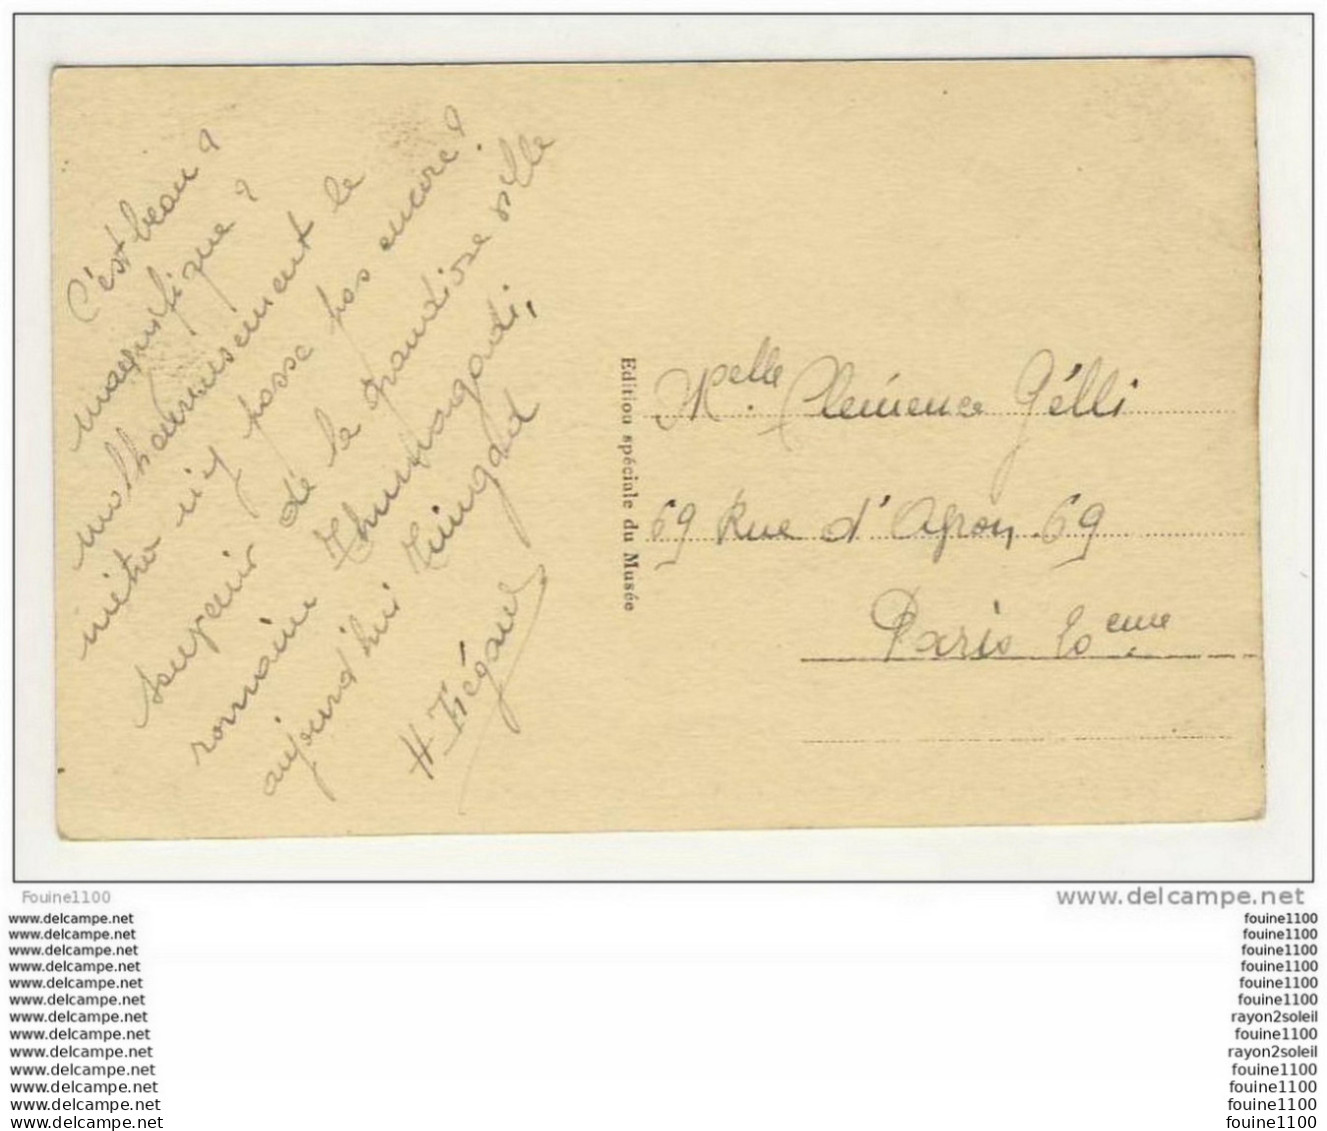 C'est beau ?
magnifique ?
malheureusement le
métro n'y passe pas encore ?
souvenir de la grandiose ville
romaine Thamagadi,
aujourd'hui Timgad
Edition spéciale du Musée
Melle. Clémence Gélli
69 Rue d' 69
Paris 20eme
Fouine1100
www.delcampe.net
www.delcampe.net
www.delcampe.net
www.delcampe.net
www.delcampe.net
www.delcampe.net
www.delcampe.net
www.delcampe.net
www.delcampe.net
www.delcampe.net
www.delcampe.net
www.delcampe.net
www.delcampe.net
www.delcampe.net
fouine1100
fouine1100
fouine1100
fouine1100
fouine1100
fouine1100
rayon2soleil
fouine1100
rayon2soleil
fouine1100
fouine1100
fouine1100
fouine1100